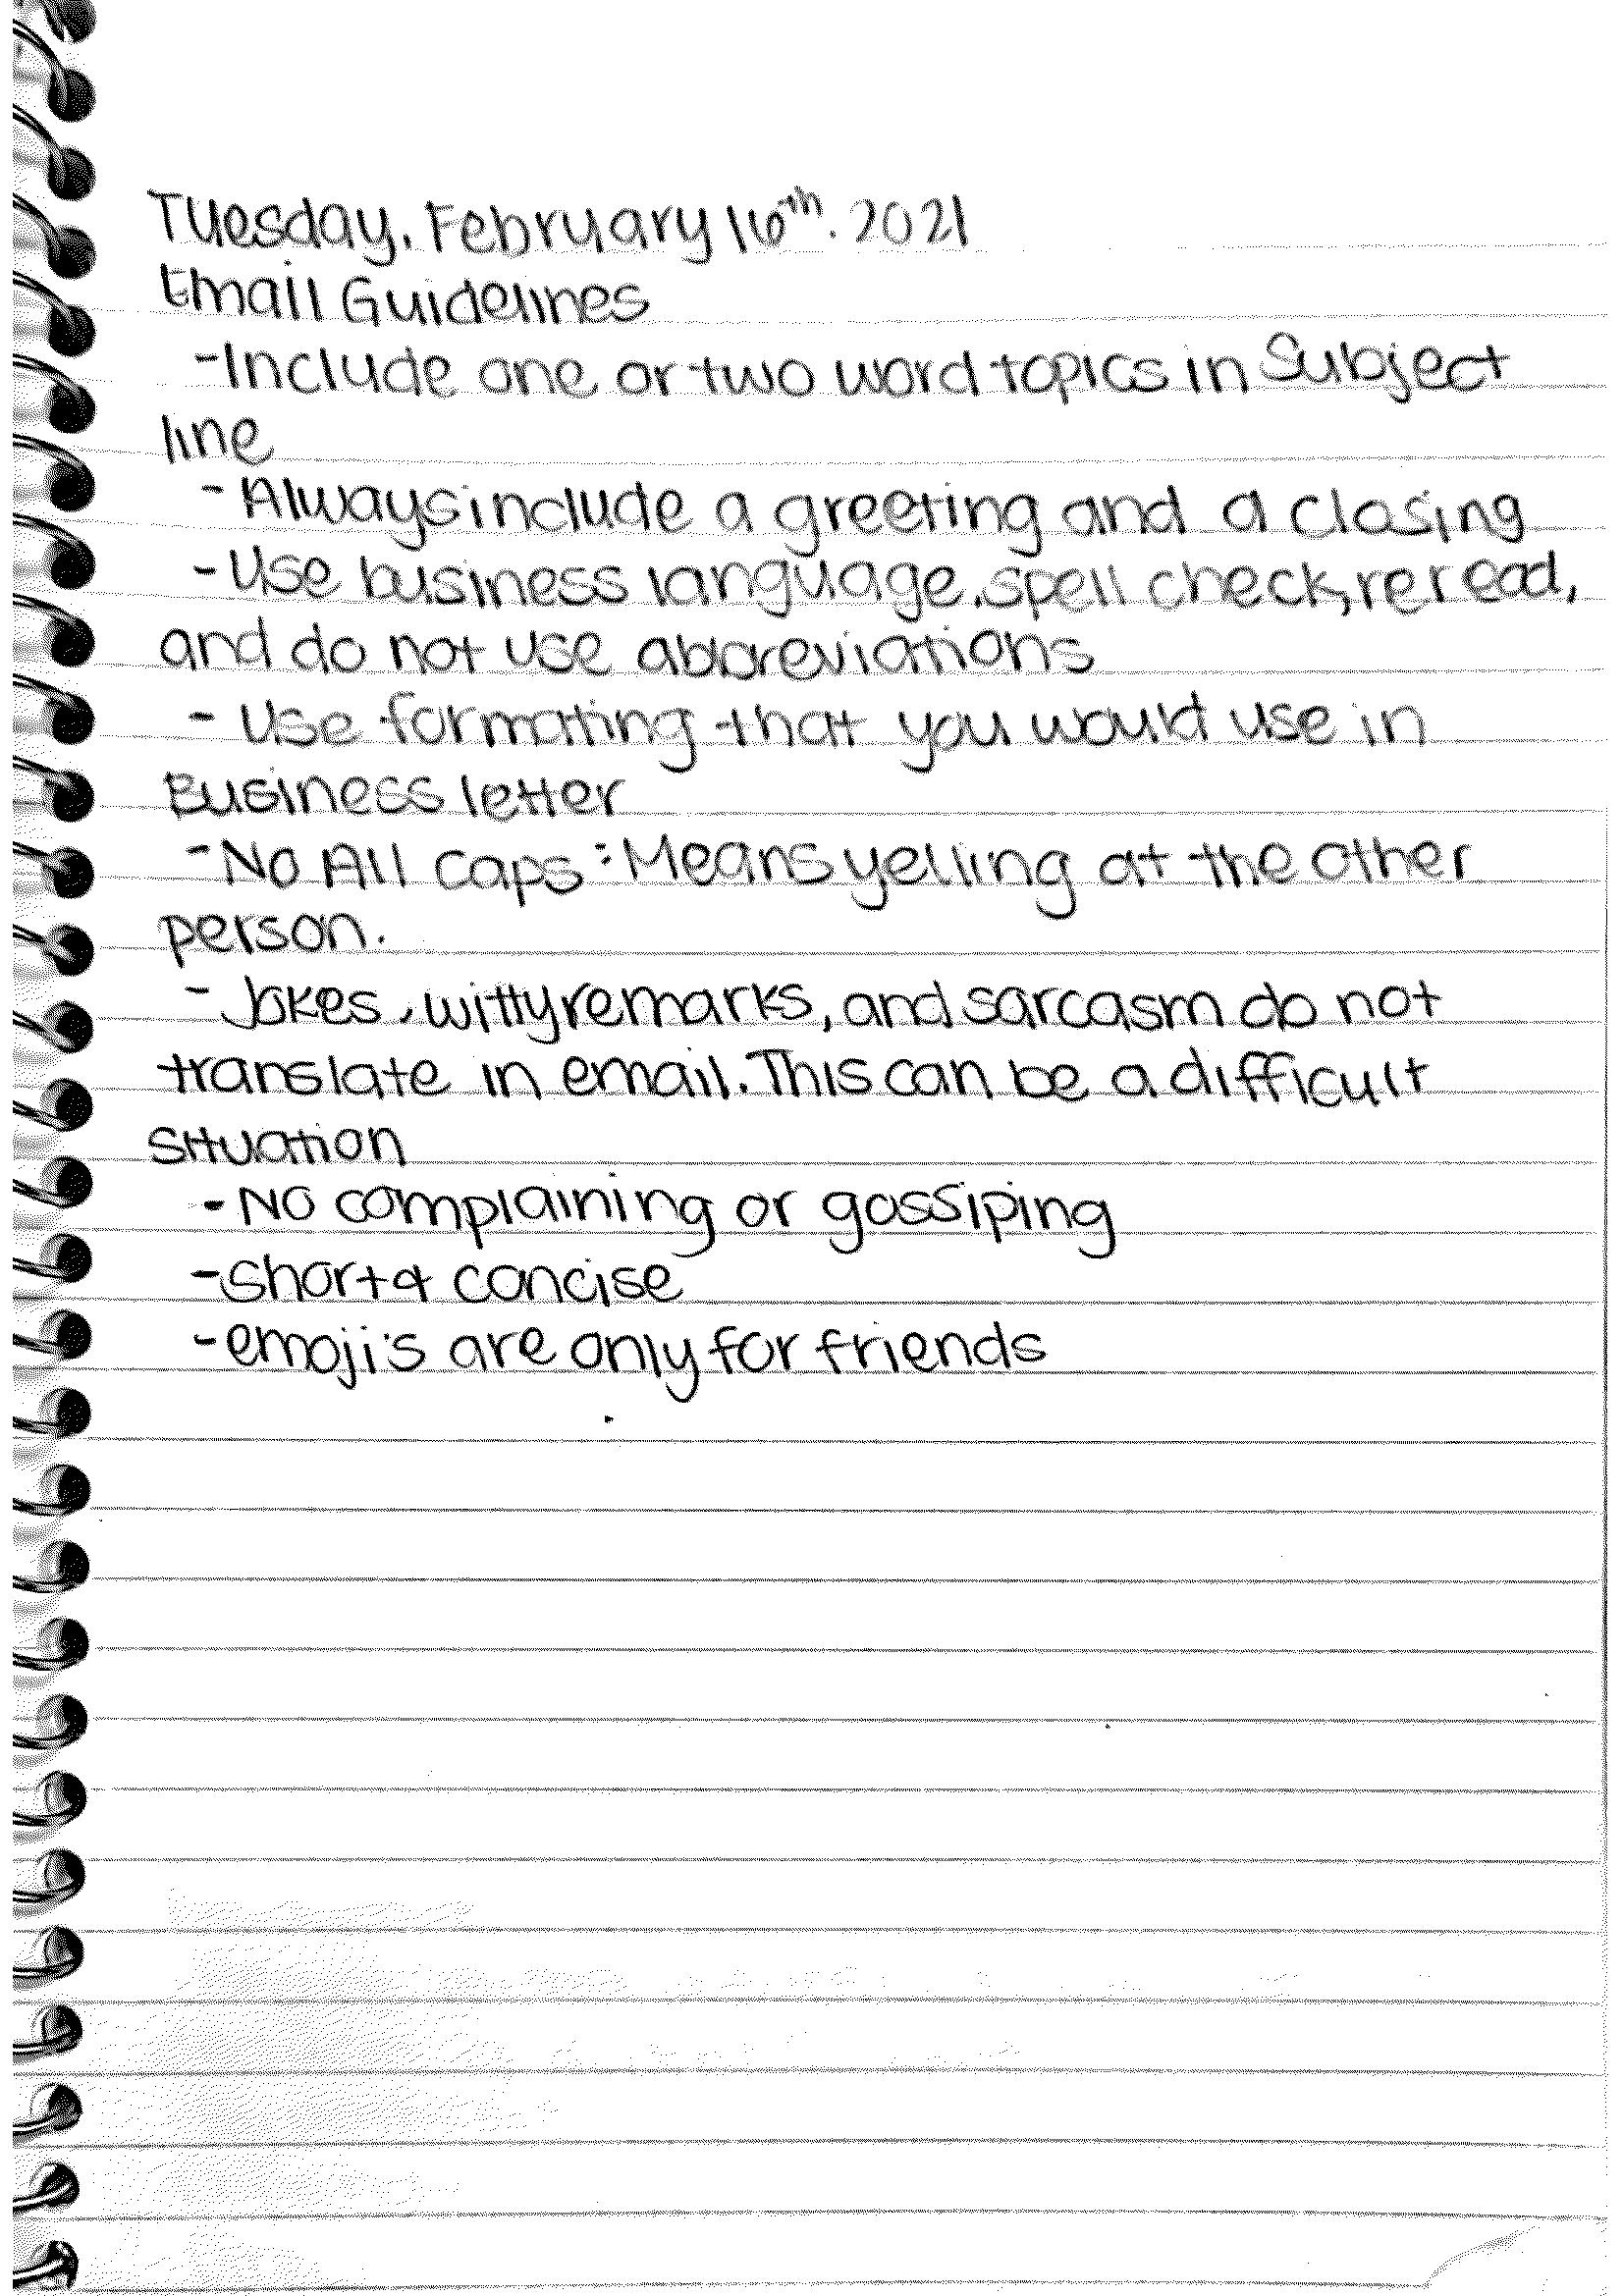 Tuesday, February 16th. 2021
Email Guidelines
-Include one or two word topics in Subject
line
- Always include a greeting and a closing
- Use business language, spell check, reread,
and do not use abbreviations
- Use formating that you would use in
Business letter
-No All caps: Means yelling at the other
person.
- Jokes, witty remarks, and sarcasm do not
translate in email. This can be a difficult
situation
- No complaining or gossiping
-Short & concise
-emoji's are only for friends